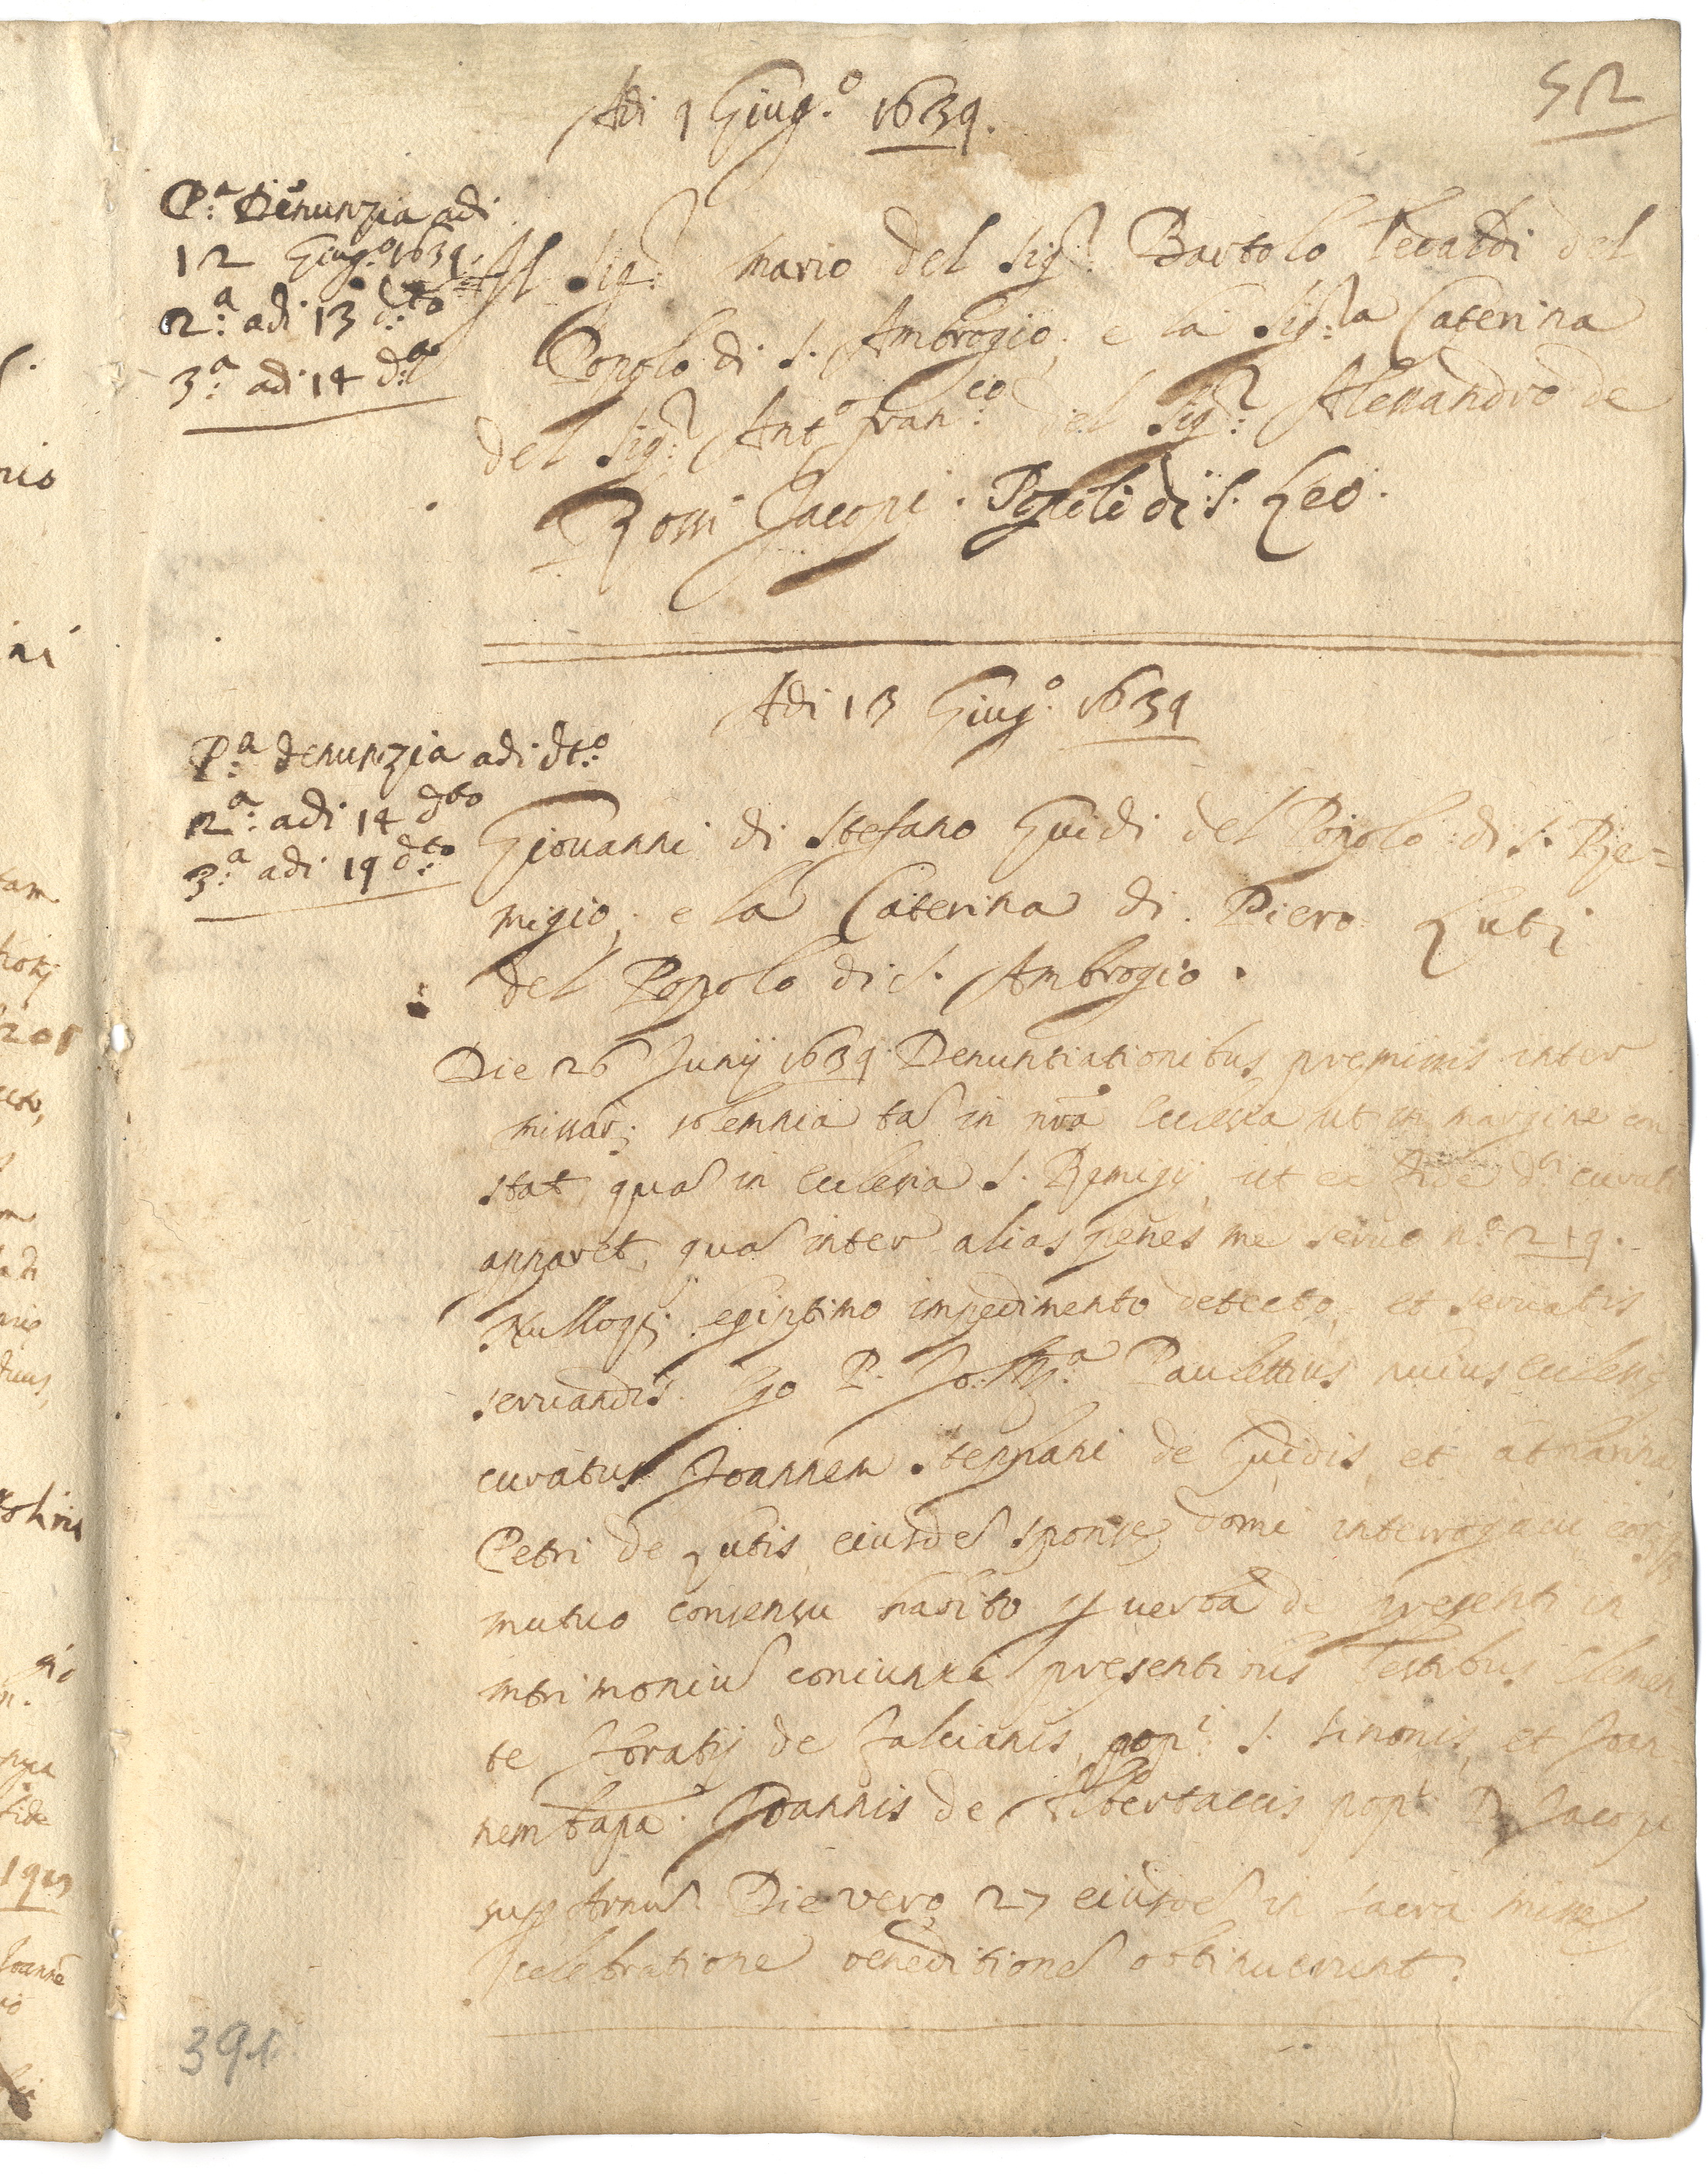 52
Adi 9 Giug.o 1639.
P.a Denunzia adi
12 Giug.o 1639.
2.a adi 13 d.to
3.a adi 14 d.o
Il Sig.r Mario del Sig.r Bartolo Tedaldi del
Popolo di S. Ambrogio, e la Sig.ra Caterina
del Sig.r Ant.o Fran.co del Sig.r Alessandro de
Rossi Jacopi. Popolo di S. Leo.
Adi 13 Giug.o 1639
P.a denunzia adi dt.o
2.a adi 14 dto
3.a adi 19 d.to
Giovanni di Stefano Guidi del Popolo di S. Re=
migio, e la Caterina di Piero Luti
del Popolo di S. Ambrogio.
Die 26 Junij 1639 Denuntiationibus premissis inter
missar; solemnia ta in nra Ecclesia ut in margine con
stat, qua in Ecclesia S. Remigij, ut ex fide dti curati
apparet, qua inter alias penes me servo n.o 219.
Nulloq; legiptimo impedimento detecto, et servatis
servandis Ego P. Jo: Bap.a Paulettius huius Ecclesie
curatus Joannem Stephani de Guidis, et Catharina
Petri de Lutis eiusde sponse domi interrogavi eorq;
mutuo consensu habito p verba de presenti in
mtrimoniu coniunxi presentibus Testibus Clemen
te Horatij de Falcianis, pop.i S. Simonis, et Joan=
nem bapa. Joannis de Albertaccis pop.i S. Jacopi
sup Arnu. Die vero 27 eiusde in sacra misse
celebratione beneditione obtinuerunt.
391